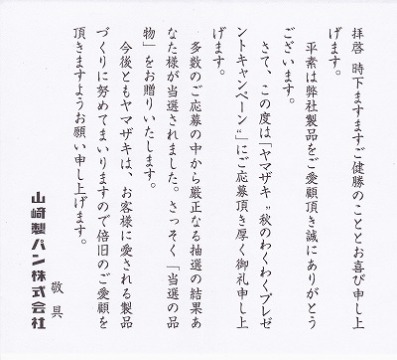 拝啓 時下ますますご健勝のこととお喜び申し上
げます。
平素は弊社製品をご愛顧頂き誠にありがとう
ございます。
さて、この度は「ヤマザキ〝秋のわくわくプレゼ
ントキャンペーン〟」にご応募頂き厚く御礼申し上
げます。
多数のご応募の中から厳正なる抽選の結果あ
なた様が当選されました。さっそく「当選の品
物」をお贈りいたします。
今後ともヤマザキは、お客様に愛される製品
づくりに努めてまいりますので倍旧のご愛顧を
頂きますようお願い申し上げます。
敬具
山崎製パン株式会社